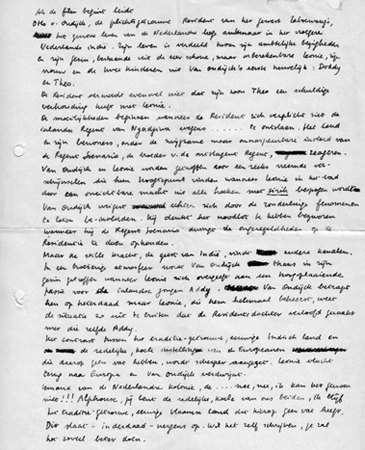 Als de film begint leidt
Otto v. Oudijck, de plichtsgetrouwe Resident van het gewest Laboewangi,
het gewone leven van de Nederlandse hoge ambtenaar in het vroegere
Nederlands Indië. Zijn leven is verdeeld tussen zijn ambtelijke bezigheden
en zijn gezin, bestaande uit de zeer schone, maar onberekenbare Leonie, zijn
vrouw en de twee kinderen uit Van Oudijck's eerste huwelijk: Doddy
en Theo.
De Resident vermoedt evenwel niet dat zijn zoon Theo een schuldige
verhouding heeft met Leonie.
De moeilijkheden beginnen wanneer de Resident zich verplicht ziet de
inlandse Regent van Ngadjiwa wegens ........ te ontslaan. Het land
en zijn bewoners, onder de invloed van
de Regent Soenario, de broeder van de ontslagen Regent, reageren.
Van Oudijck en Leonie worden getroffen door een reeks vreemde ver-
schijnselen die hun hoogtepunt vinden wanneer Leonie in het bad
door een onzichtbare macht uit alle hoeken met sirih bespogen wordt.
Van Oudijck weigert echter zich door de zonderlinge fenomenen
te laten beïnvloeden. Hij denkt het noodlot te hebben
wanneer hij de Regent Soenario dwingt de ongeregeldheden op de
Residentie te doen ophouden.
Maar de stille kracht, de geest van Indië, vindt andere kanalen.
In een broeierige atmosfeer wordt Van Oudijck thans in zijn
gezin getroffen wanneer Leonie zich overgeeft aan een hoogoplaaiende
passie voor de inlandse jongen Addy. Van Oudijck betrapt
hen op heterdaad maar Leonie, die hem helemaal beheerst, weet
de situatie zo uit te buiten dat de Residentsdochter verloofd geraakt
met die zelfde Addy.
Het contrast tussen het traditie-getrouwe, eeuwige Indisch land en
de redelijke, koele instellingen van de Europeanen
die daarop geen vat hebben, wordt scherper aangezet. Leonie vlucht
terug naar Europa en Van Oudijck verdwijnt.
Iemand van de Nederlandse kolonie, de .... nee, nee, ik kan het gewoon
niet!!! Alphonse, jij bent de redelijke, koele van ons beiden, ik blijf
het traditie-getrouwe, eeuwige Vlaamse land dat hierop geen vat heeft.
Dit slaat - inderdaad - nergens op. Wil het zelf schrijven, je zal
het zoveel beter doen.